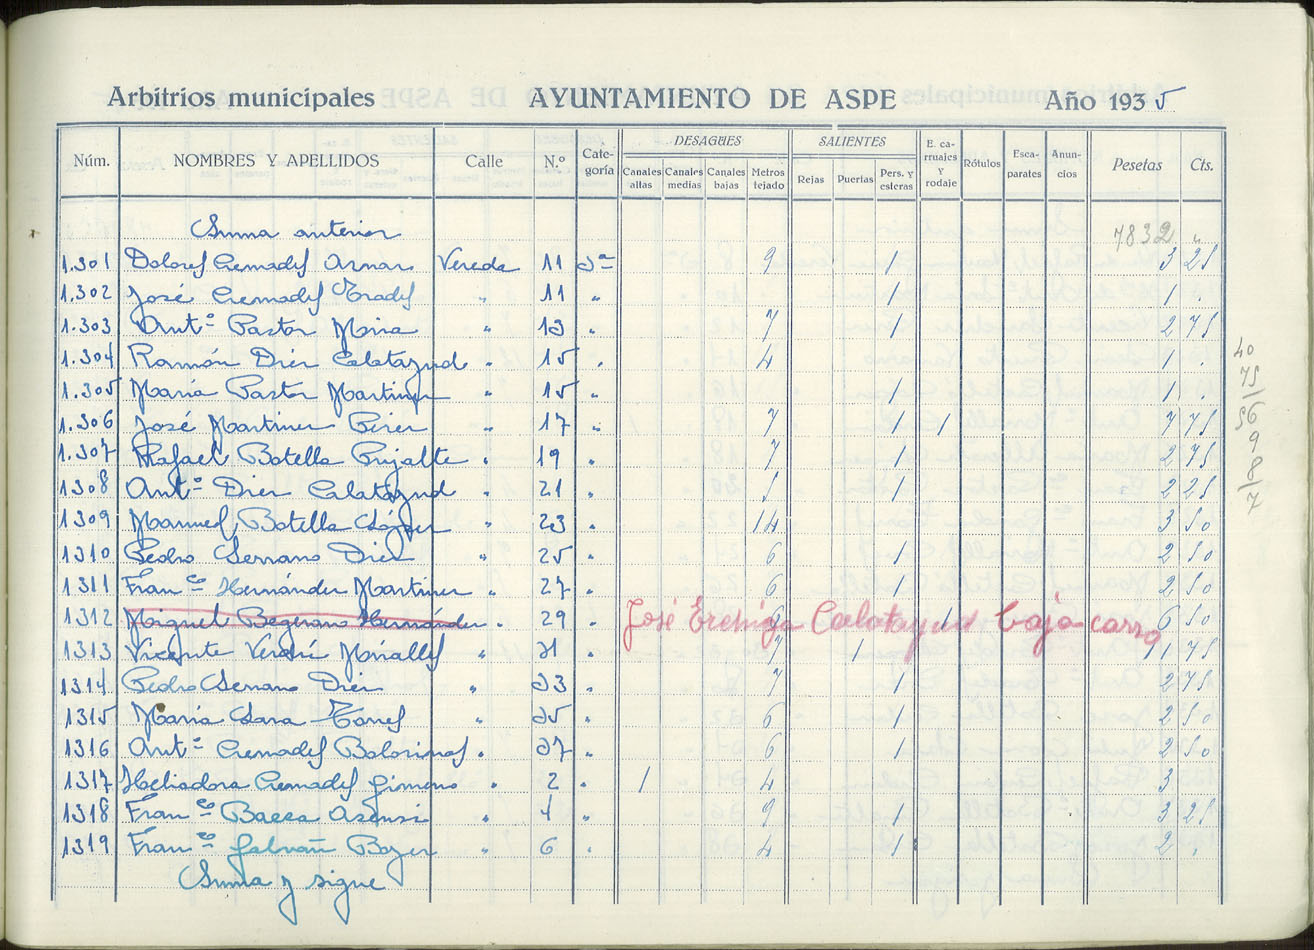 Arbitrios municipales AYUNTAMIENTO DE ASPE Año 1935
Núm. NOMBRES Y APELLIDOS Calle N.º Cate-goría DESAGÜES Canales altas Canales medias Canales bajas Metros tejado SALIENTES Rejas Puertas Pers. y esteras E. ca-rruajes y rodaje Rótulos Esca-parates Anun-cios Pesetas Cts.
Suma anterior 7832 "
1.301 Dolores Cremades Aznar Vereda 11 3ª 9 1 3 25
1.302 José Cremades Prades " 11 " 1 1 .
1.303 Antº Pastor Mira " 13 " 7 1 2 75
1.304 Ramón Diez Calatayud " 15 " 4 1 .
1.305 María Pastor Martinez " 15 " 1 1 .
1.306 José Martinez Perez " 17 " 7 1 1 7 75
1.307 Rafael Botella Pujalte " 19 " 7 1 2 75
1308 Antº Diez Calatayud " 21 " 5 1 2 25
1309 Manuel Botella López " 23 " 14 3 50
1310 Pedro Serrano Diez " 25 " 6 1 2 50
1311 Franco Hernández Martinez " 27 " 6 1 2 50
1312 Miguel Hernández " 29 " José Calatayud baja carro 6 1 6 50
1313 Vicente Verdú Miralles " 31 " 7 1 11 75
1314 Pedro Serrano Diez " 33 " 7 1 2 75
1315 María Torres " 35 " 6 1 2 50
1316 Antº Cremades " 37 " 6 1 2 50
1317 Heliodora Cremades Gimeno " 2 " 1 4 3
1318 Franco Baeza Asensi " 4 " 9 1 3 25
1319 Franco Galvañ " 6 " 4 1 2 .
Suma y sigue
40
75
56
9
8
7